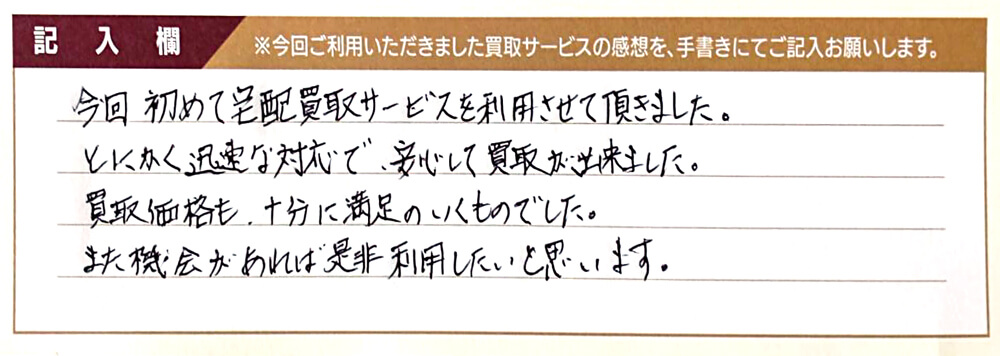 記入欄
※今回ご利用いただきました買取サービスの感想を、手書きにてご記入お願いします。
今回 初めて宅配買取サービスを利用させて頂きました。
とにかく迅速な対応で、安心して買取が出来ました。
買取価格も、十分に満足のいくものでした。
また機会があれば是非利用したいと思います。